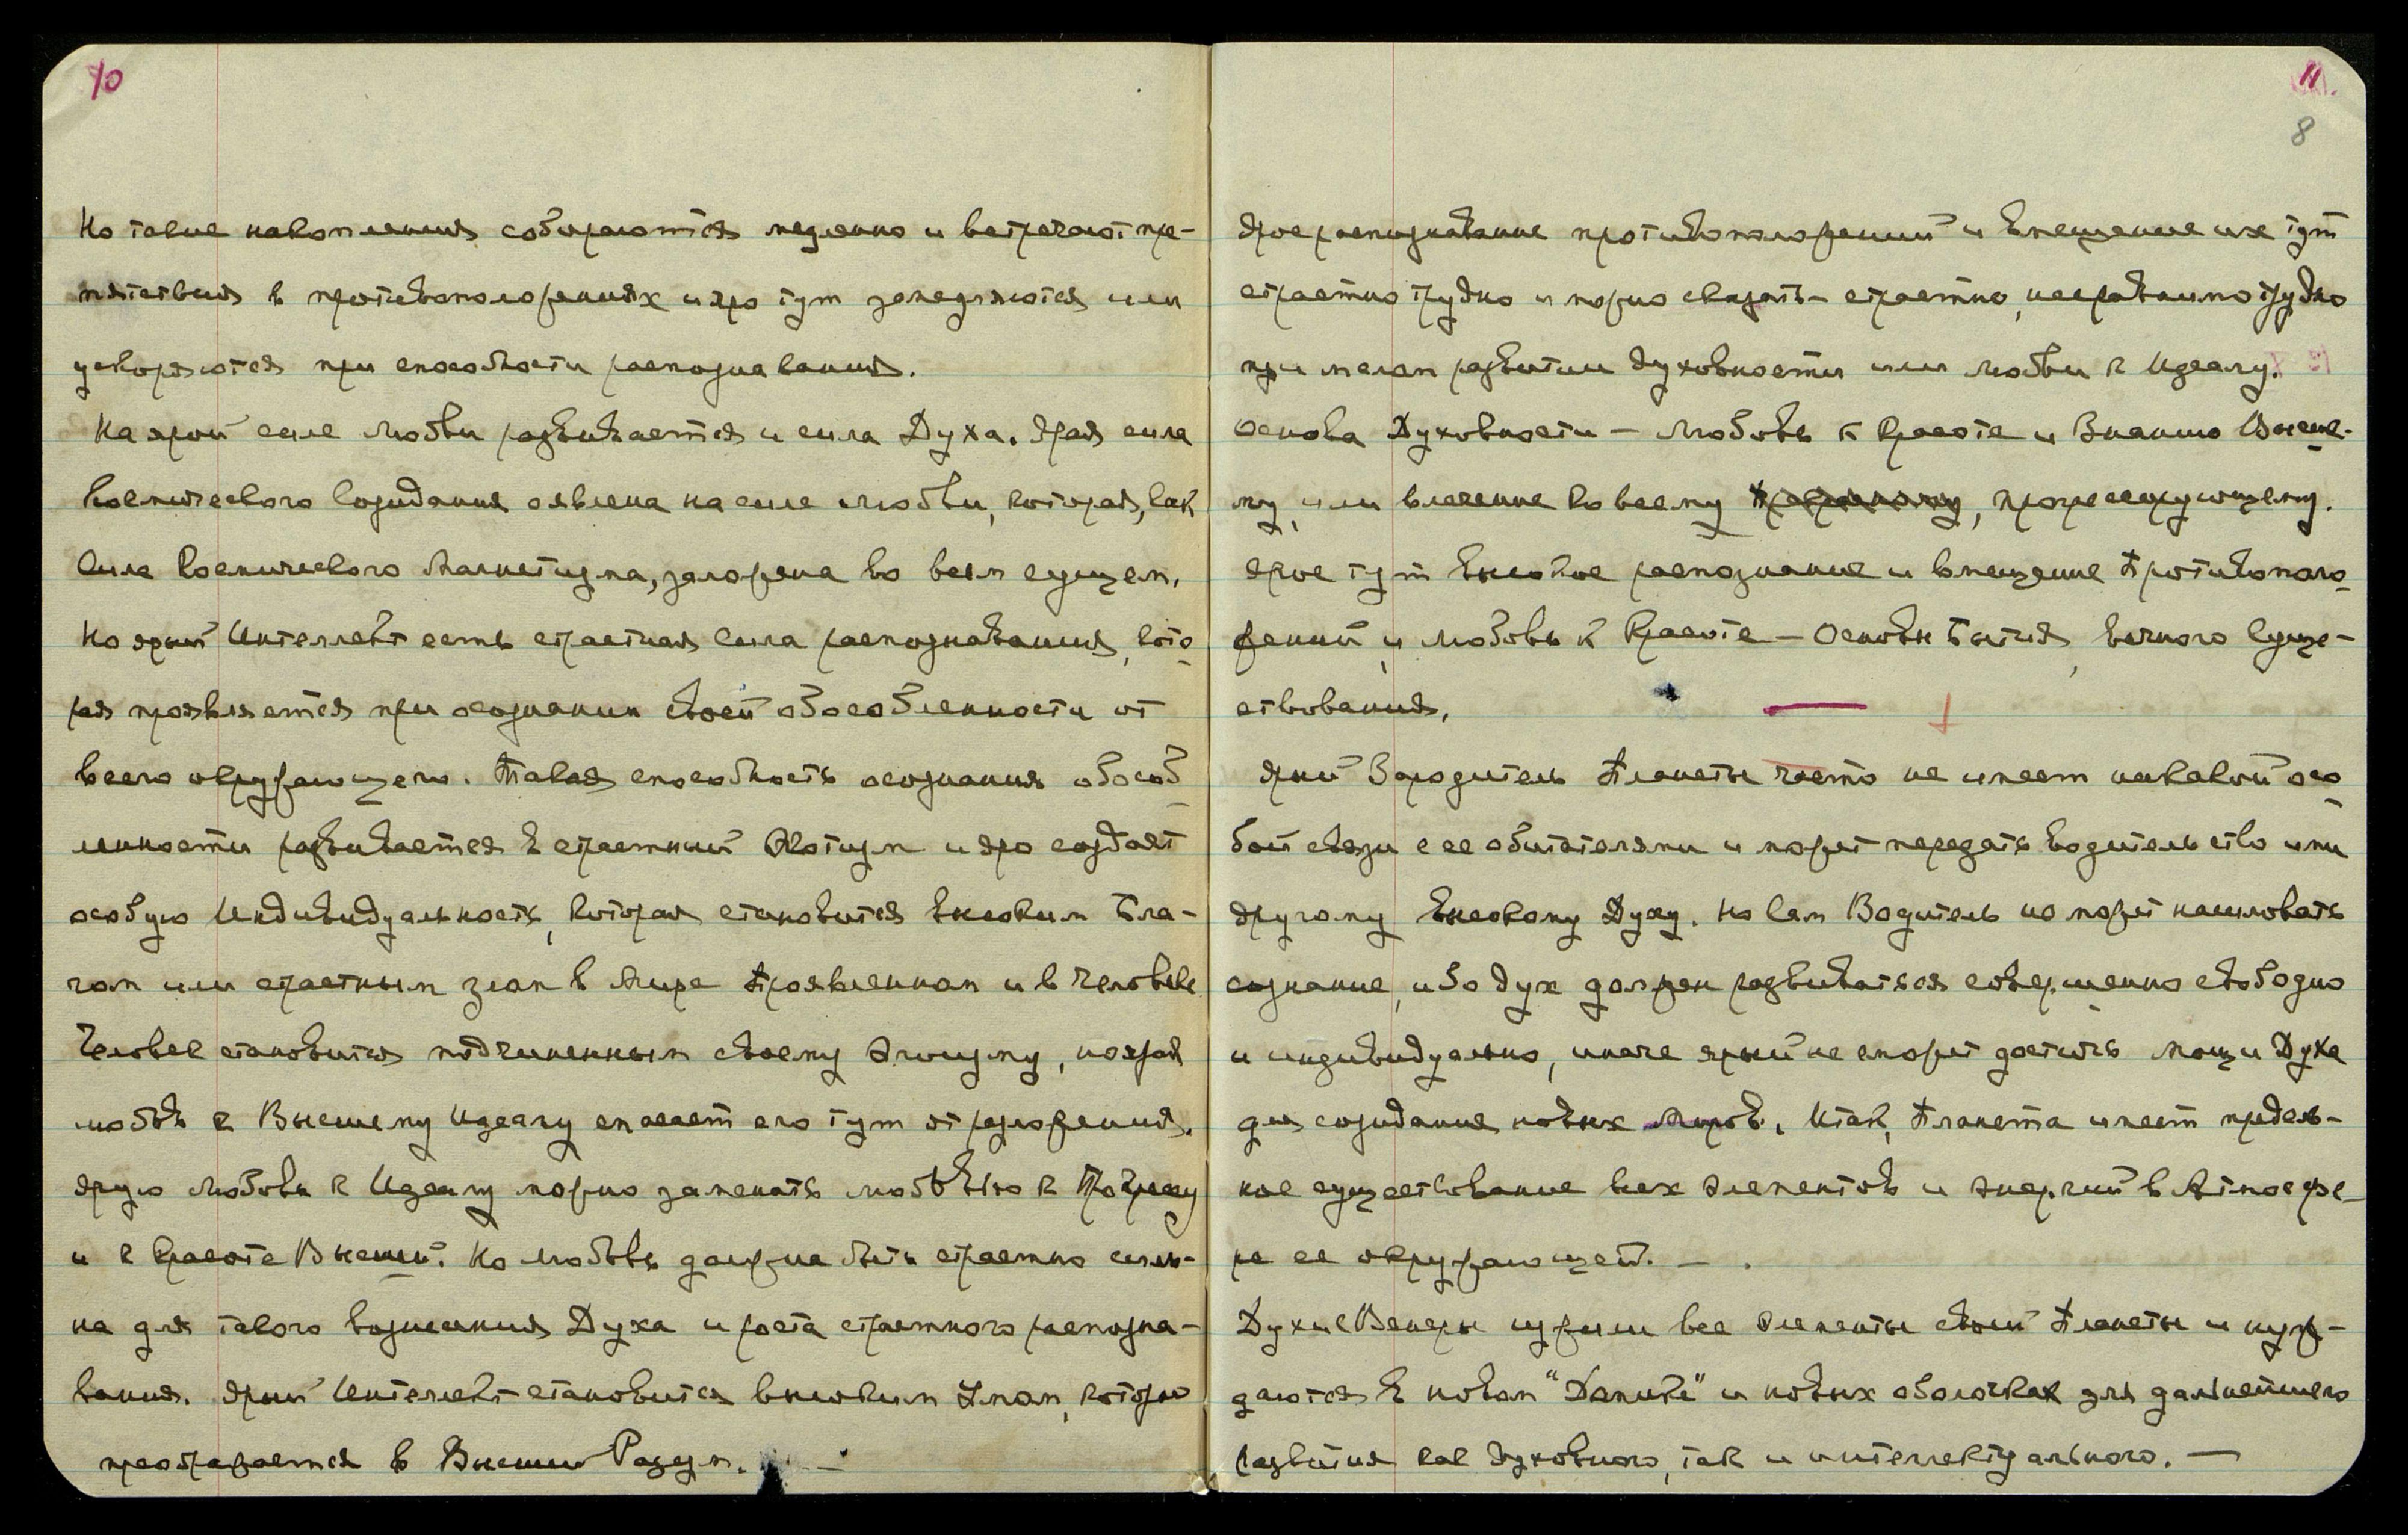 10
Но такие накопления собираются медленно и встречают пре-
пятствия в противоположениях и яро тут замедляются или
ускоряются при способности распознавания.
На ярой силе Любви развивается и сила Духа. Ярая сила
Космического Созидания оявлена на силе Любви, которая, как
Сила Космического Магнетизма, заложена во всем сущем.
Но ярый Интеллект есть страстная Сила распознавания, кото
рая проявляется при осознании своей обособленности от
всего окружающего. Такая способность осознания обособ
ленности развивается в страстный Эготизм и яро создает
особую Индивидуальность, которая становится высоким Бла-
гом или страстным злом в Мире Проявленном и в Человеке
Человек становится подчиненным своему Эгоизму, но ярая
любовь к Высшему Идеалу спасает его тут от разложения.
Ярую Любовь к Идеалу можно заменить любовью к Прогрессу
и к Красоте Высшей. Но Любовь должна быть страстно силь-
на для такого возношения Духа и роста страстного распозна-
вания. Ярый Интеллект становится высоким Умом, который
преображается в Высший Разум. —
11.
8
Ярое распознавание противоположений и вмещение их тут
страстно трудно и можно сказать – страстно, несравнимо трудно
при малом развитии духовности или Любви к Идеалу.
Основа Духовности – Любовь к Красоте и Знанию Высше-
му, или влечение ко всему , прогрессирующему.
Ярое тут высокое распознание и вмещение Противополо
жений, и Любовь к Красоте – Основы Бытия, вечного Суще-
ствования.
Ярый Водитель Планеты часто не имеет никакой осо
бой связи с ее обитателями и может передать Водительство ими
другому Высокому Духу. Но Сам Водитель не может насиловать
сознание, ибо дух должен развиваться совершенно свободно
и индивидуально, иначе ярый не сможет достичь мощи Духа
для созидания новых Миров. Итак, Планета имеет предель-
ное существование всех элементов и энергий в Атмосфе-
ре ее окружающей. – .
Духи с Венеры изжили все элементы своей Планеты и нуж-
даются в новом "Topливе" и новых оболочках для дальнейшего
развития как духовного, так и интеллектуального. —